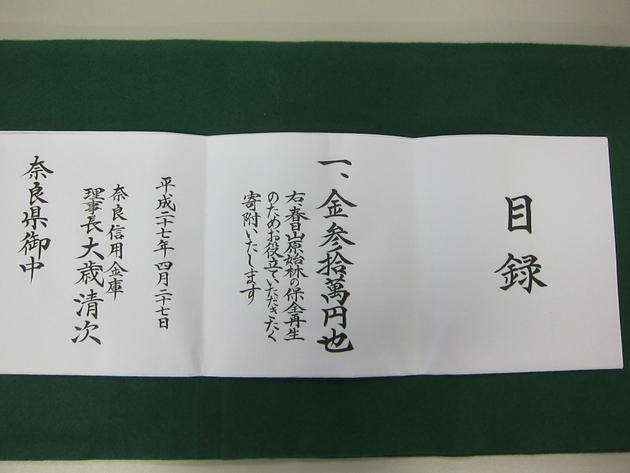 目録
一、金参拾萬円也
右、春日山原始林の保全再生
のためお役立ていただきたく
寄附いたします
平成二十七年四月二十七日
奈良信用金庫
理事長大歳清次
奈良県御中